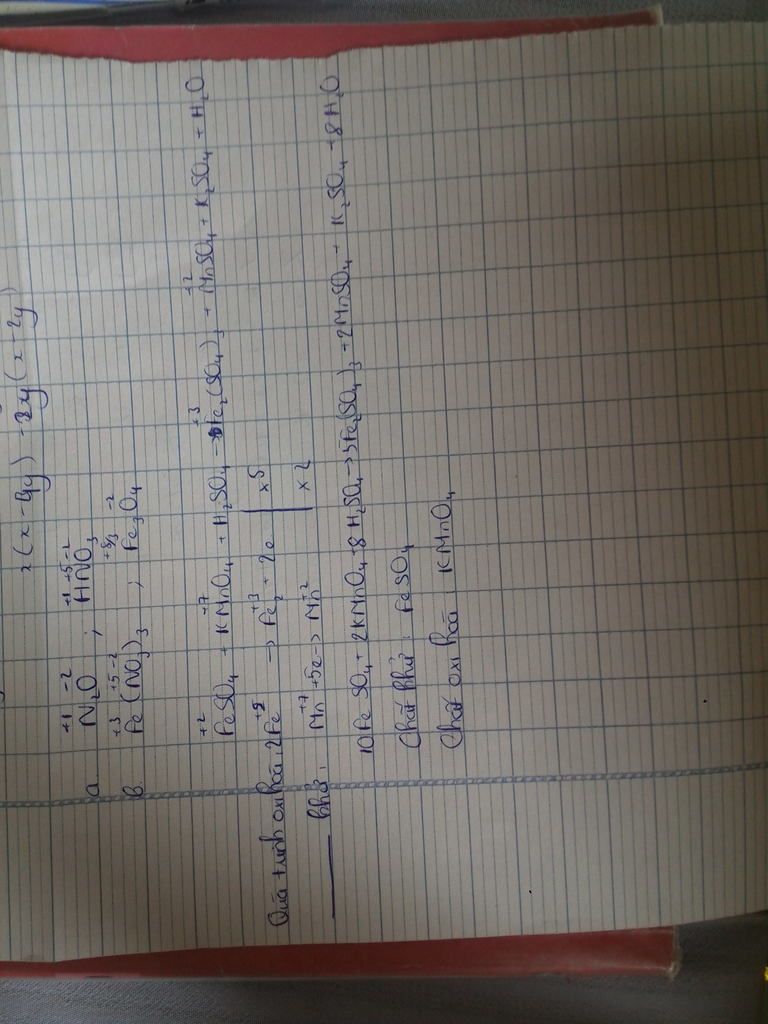 x(x-4y) - 2y(x-2y)
+1 -2 +1 +5 -2
a. N₂O ; HNO₃
+3 +5 -2 +8/3 -2
b. Fe(NO₃)₃ ; Fe₃O₄
+2 +7 +3 +2
FeSO₄ + KMnO₄ + H₂SO₄ → Fe₂(SO₄)₃ + MnSO₄ + K₂SO₄ + H₂O
Quá trình oxi hoá: 2Fe⁺² → Fe₂⁺³ + 2e | x5
——— khử: Mn⁺⁷ + 5e → Mn⁺² | x2
10FeSO₄ + 2KMnO₄ + 8H₂SO₄ → 5Fe₂(SO₄)₃ + 2MnSO₄ + K₂SO₄ + 8H₂O
Chất khử: FeSO₄
Chất oxi hoá: KMnO₄